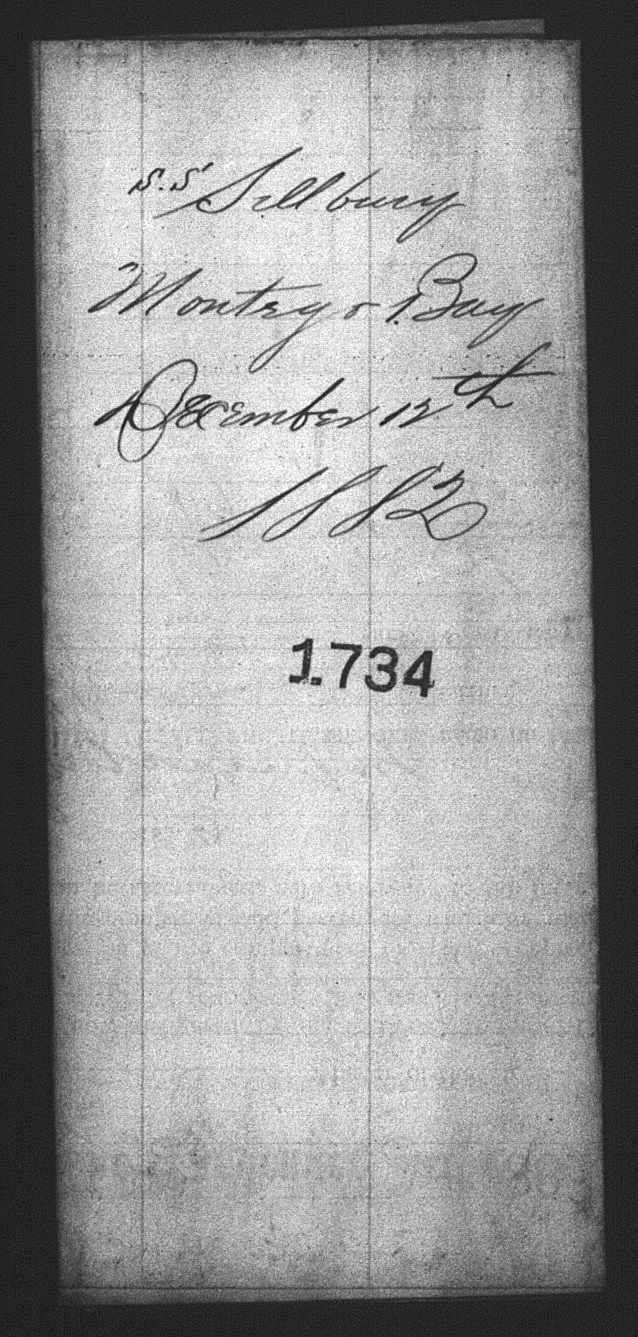 S.S. Sillbury
Montego Bay
December 12th
1882
1.734